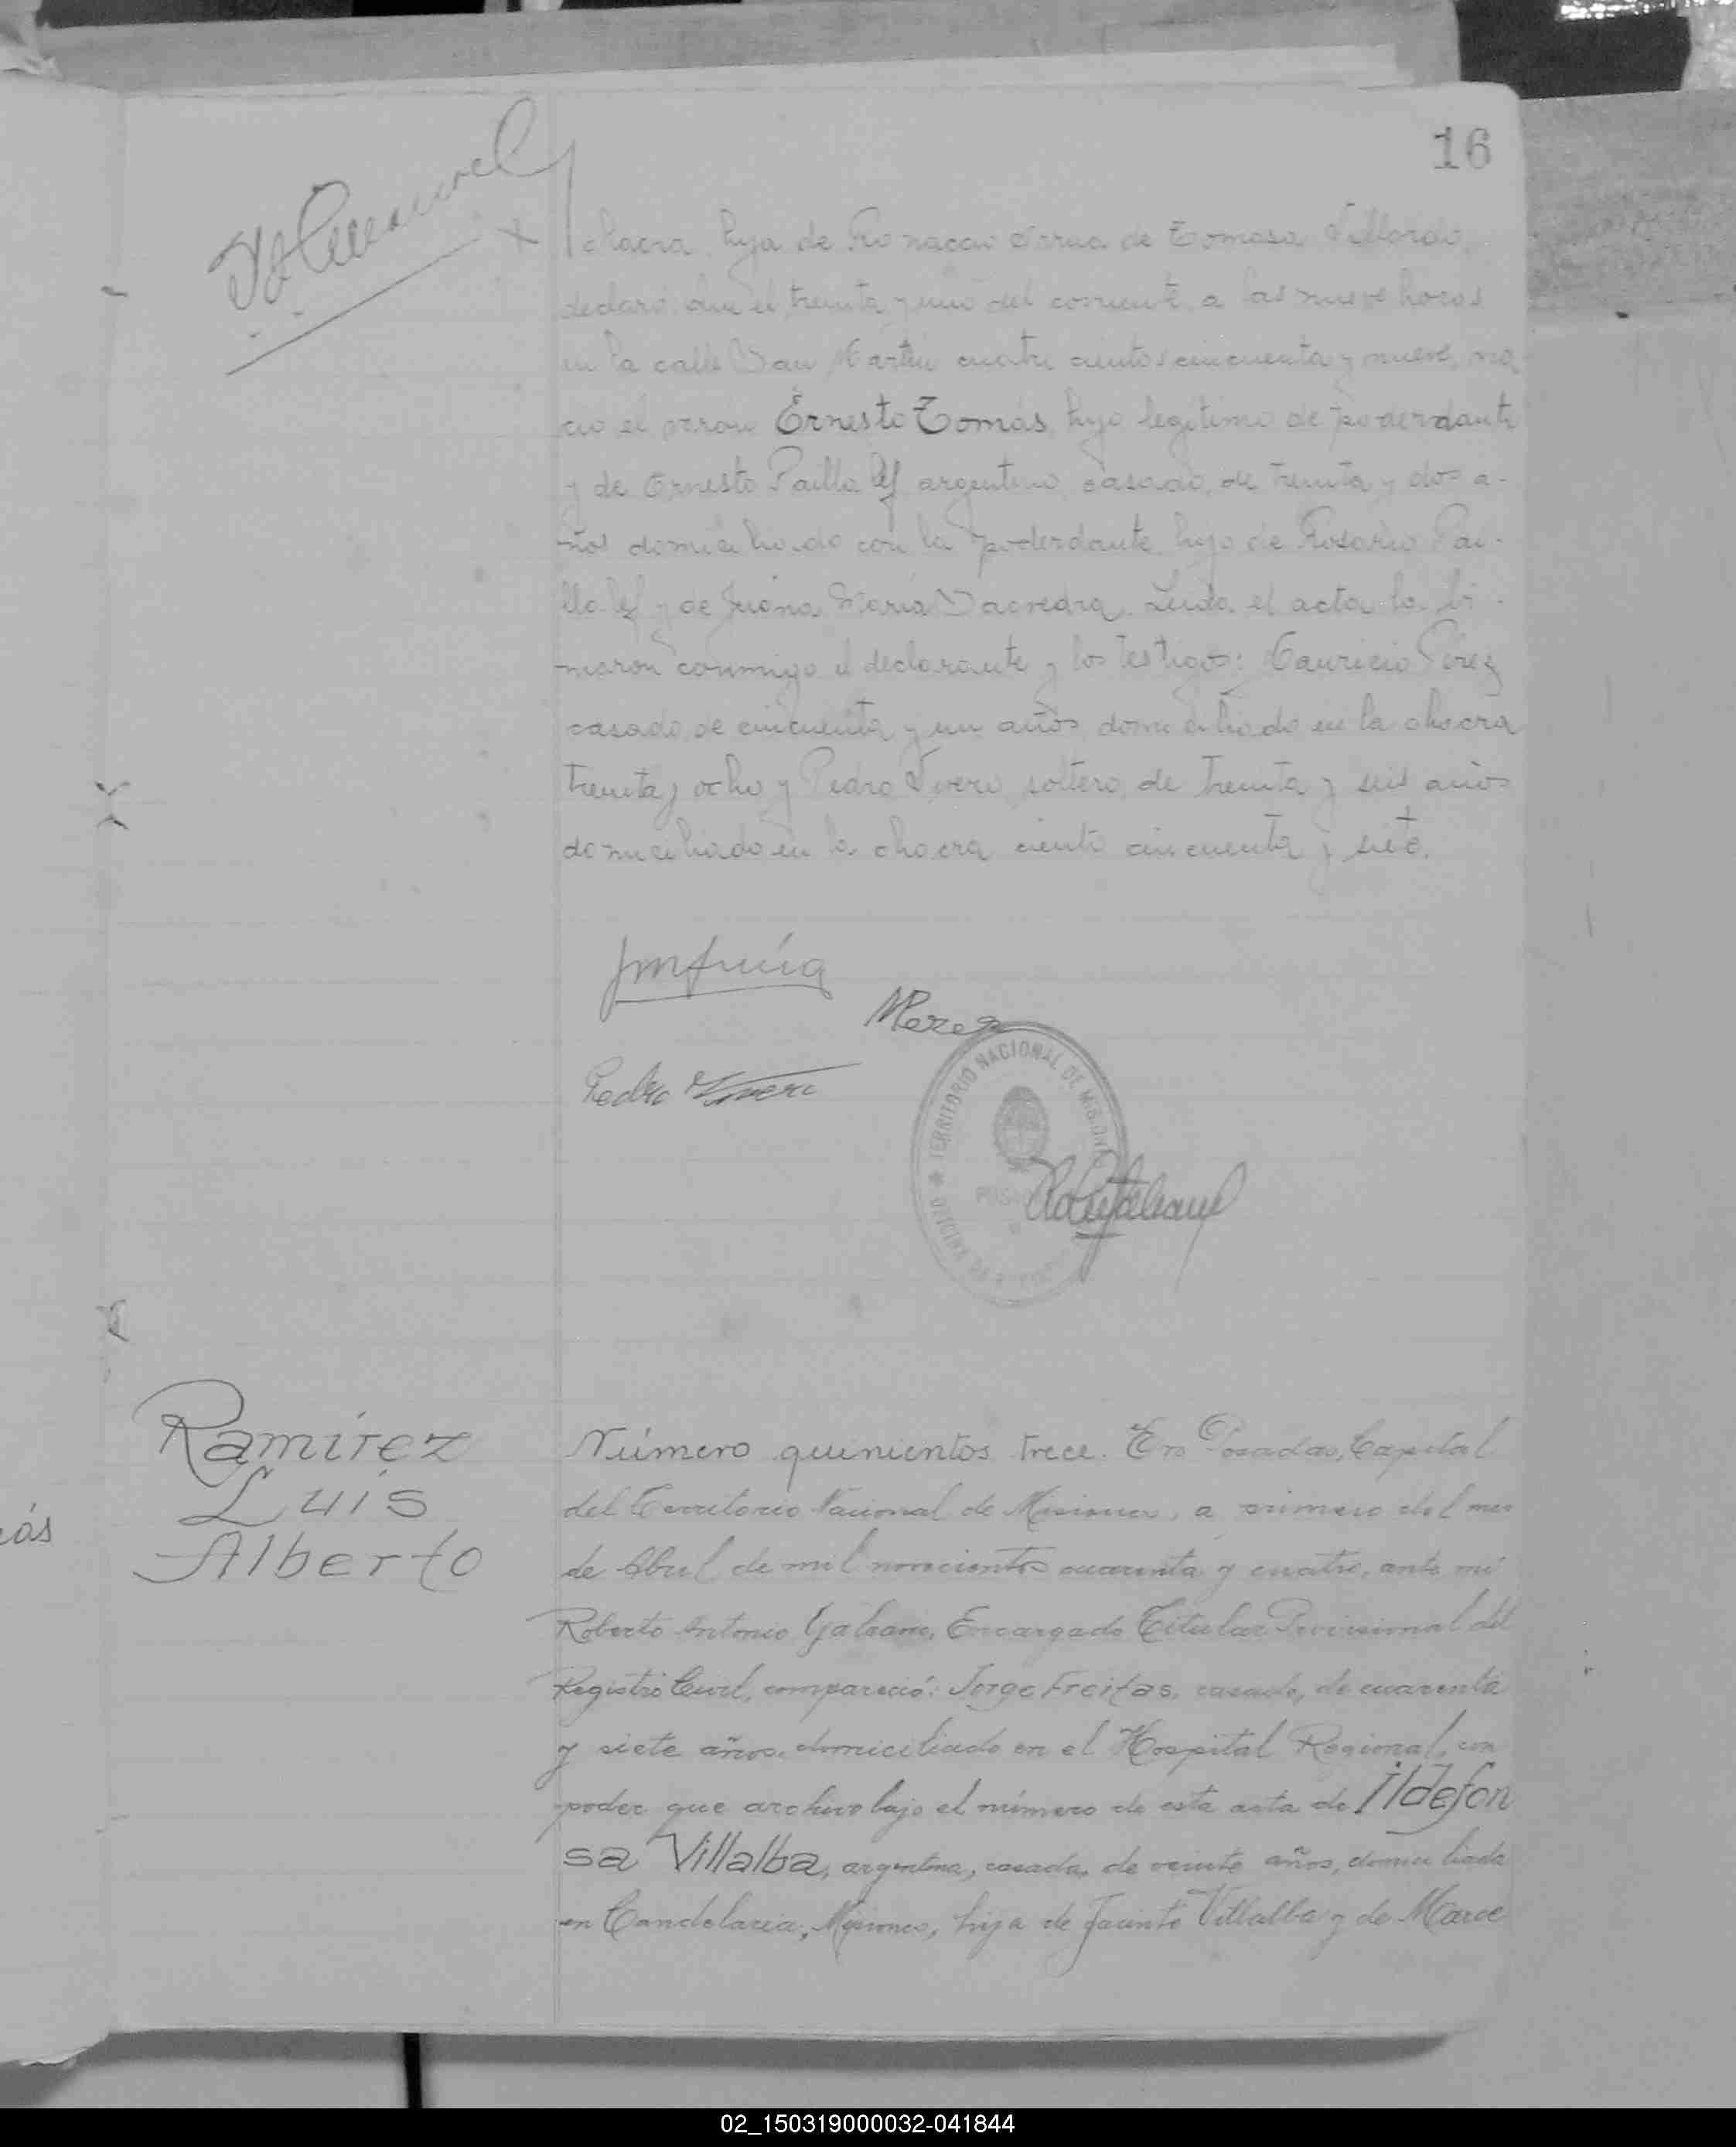 16
chacra, hija de de Tomasa Villordo,
declaró: que el treinta y uno del corriente, a las nueve horas
en la calle San Martin cuatro cientos cincuenta y nueve, na
ció el varon Ernesto Tomás, hijo legitimo de poderdante
y de Ernesto Paillalef argentino, casado, de treinta y dos a-
ños domiciliado con la poderdante, hijo de Rosario Pai-
llalef y de Juana Maria Saavedra. Leida el acta la fir-
maron conmigo el declarante y los testigos: Mauricio Pérez
casado, de cincuenta y un años, domiciliado en la chacra
treinta y ocho y Pedro Vivero, soltero, de treinta y seis años
domiciliado en la chacra ciento cincuenta y siete.
MPerez
Pedro Vivero
TERRITORIO NACIONAL DE MISIONES
Ramírez
Luis
Alberto
Número quinientos trece. En Posadas, Capital
del Territorio Nacional de Misiones, a primero del mes
de Abril de mil novecientos cuarenta y cuatro, ante mi
Roberto Antonio Galeano, Encargado Titular Provisional del
Registro Civil, compareció: Jorge Freitas, casado, de cuarenta
y siete años, domiciliado en el Hospital Regional, con
poder que archivo bajo el número de esta acta de Ildefon
sa Villalba, argentina, casada, de veinte años, domiciliada
en Candelaria, Misiones, hija de Jacinto Villalba y de Marce
ás
02_150319000032-041844